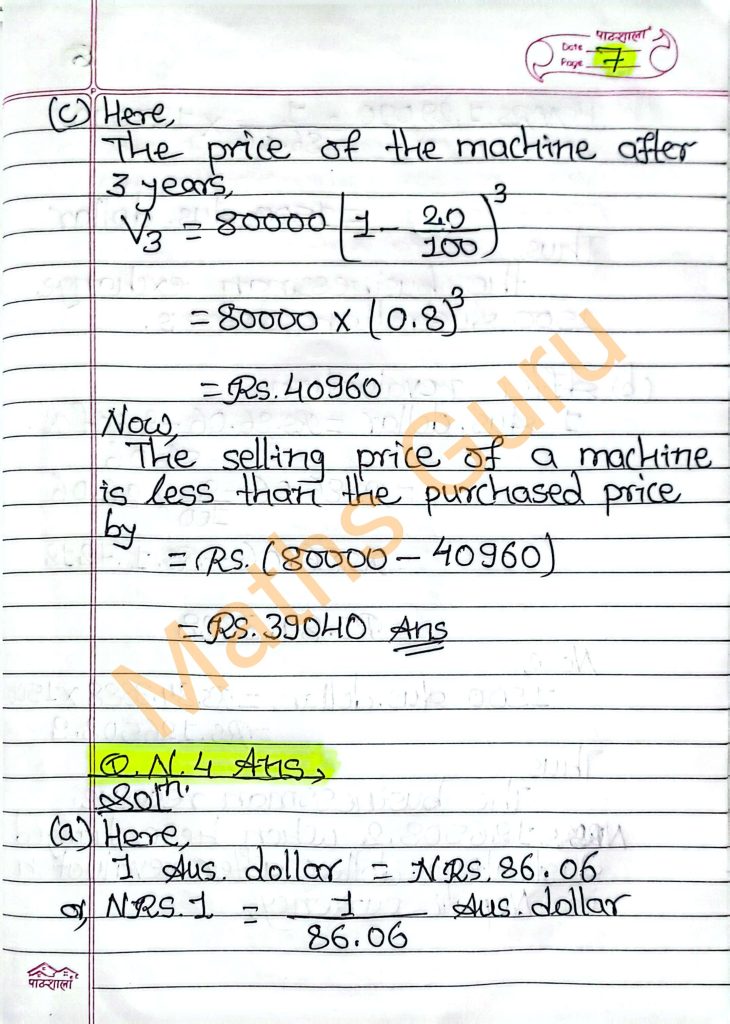 पाठशाला
Date
Page 7
(c) Here,
The price of the machine after
3 years,
V₃ = 80000 (1 - 20/100)³
= 80000 × (0.8)³
= Rs. 40960
Now,
The selling price of a machine
is less than the purchased price
by
= Rs. (80000 - 40960)
= Rs. 39040 Ans
Maths Guru
Q.N.4 Ans,
Solⁿ.
(a) Here,
1 Aus. dollar = NRS. 86.06
or, NRS. 1 = 1/86.06 Aus. dollar
पाठशाला